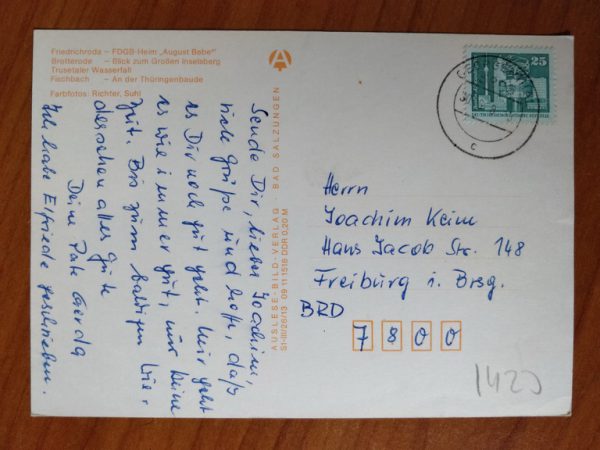 Friedrichroda – FDGB-Heim „August Bebel"
Brotterode – Blick zum Großen Inselsberg
Trusetaler Wasserfall
Fischbach – An der Thüringenbaude
Farbfotos: Richter, Suhl
A
AUSLESE-BILD-VERLAG · BAD SALZUNGEN
St-III/26/13 09 11 1516 DDR 0,20 M
25
C
Sende Dir, lieber Joachim,
viele Grüße und hoffe, daß
es Dir noch gut geht. Mir geht
es wie immer gut, nur keine
Zeit. Bis zum baldigen Wie-
dersehen alles Gute
Deine Pate Gerda
Ich habe Elfriede geschrieben.
Herrn
Joachim Keim
Hans Jacob Str. 148
Freiburg i. Brsg.
BRD
7800
1420